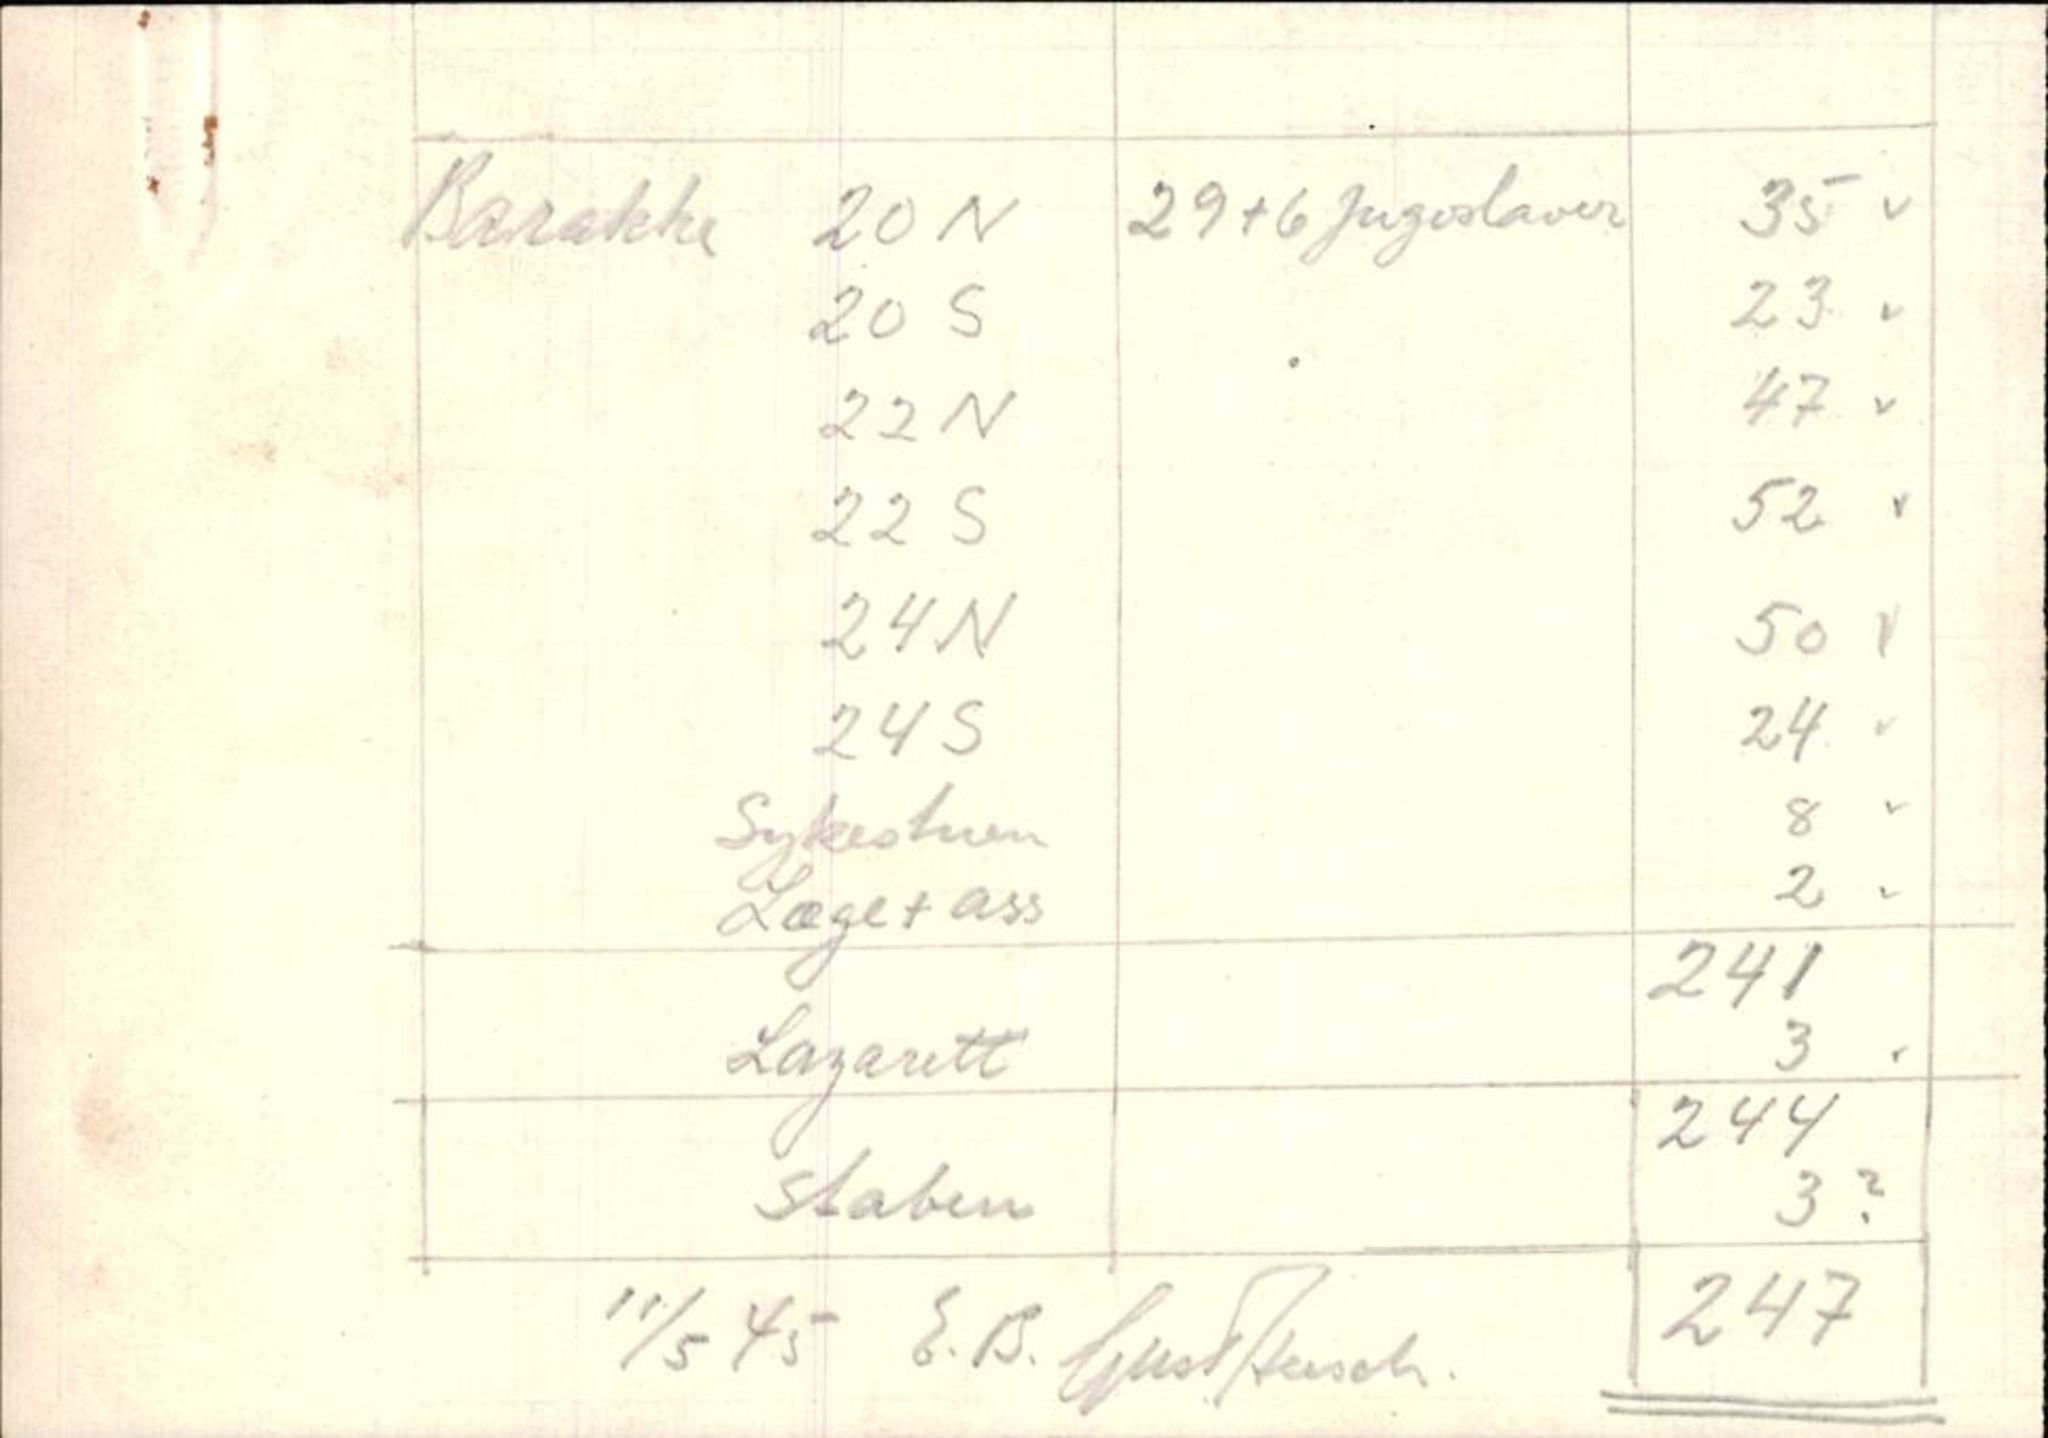 Barakke 20 N 29+6 Jugoslaver 35 v
20 S 23 v
22 N 47 v
22 S 52 v
24 N 50 v
24 S 24 v
Sykestuen 8 v
Læge + ass 2 v
241
Lazarett 3 v
244
Staben 3 ?
247
11/5 45 E. B.